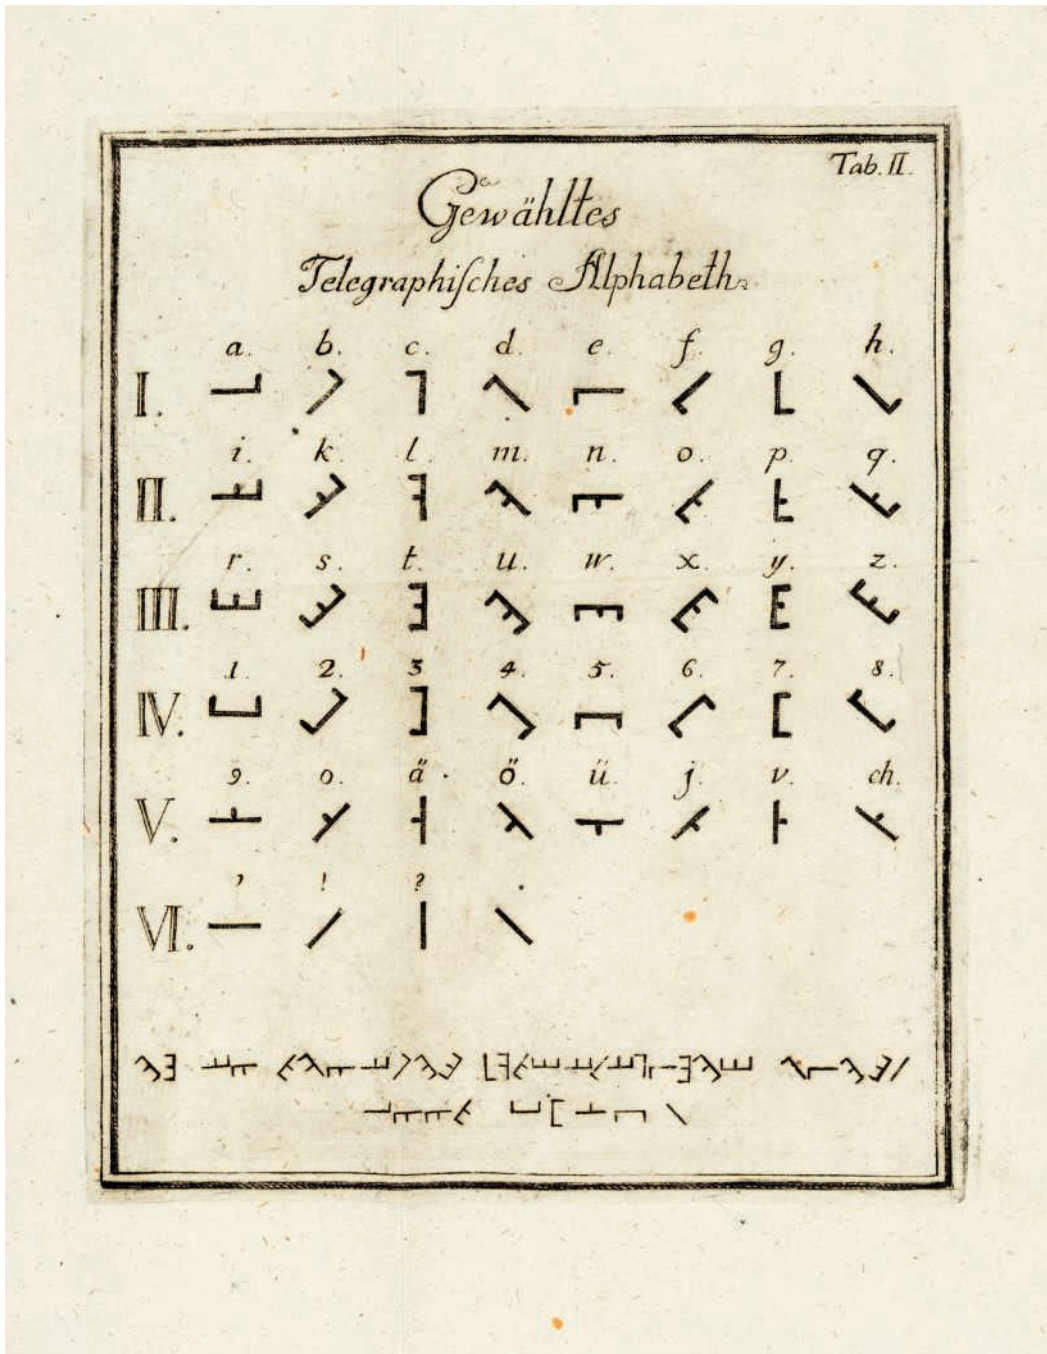 Tab. II.
Gewähltes
Telegraphisches Alphabeth.
a. b. c. d. e. f. g. h.
I.
i. k. l. m. n. o. p. q.
II.
r. s. t. u. w. x. y. z.
III.
1. 2. 3 4. 5. 6. 7. 8.
IV.
9. 0. ä. ö. ü. j. v. ch.
V.
, ! ? .
VI.